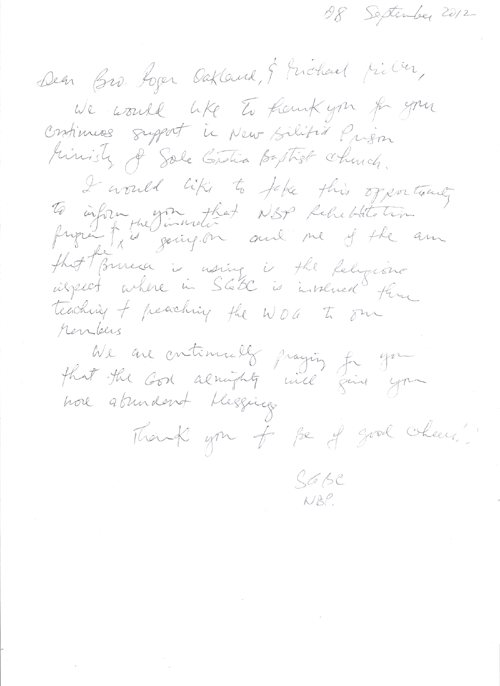 08 September 2012
Dear Bro. Roger Oakland, & Michael Miller,
We would like to thank you for your
continues support in New Bilibid Prison
Ministry of Sola Gratia Baptist Church.
I would like to take this opportunity
to inform you that NBP Rehabilitation
Program to the inmates is going on and one of the arm
that the Bureau is using is the Religious
aspect where in SGBC is involved thru
teaching & preaching the WOG to our
Members
We are continually praying for you
that the God almighty will give you
more abundant blessings
Thank you & Be of good cheers!!
SGBC
NBP.